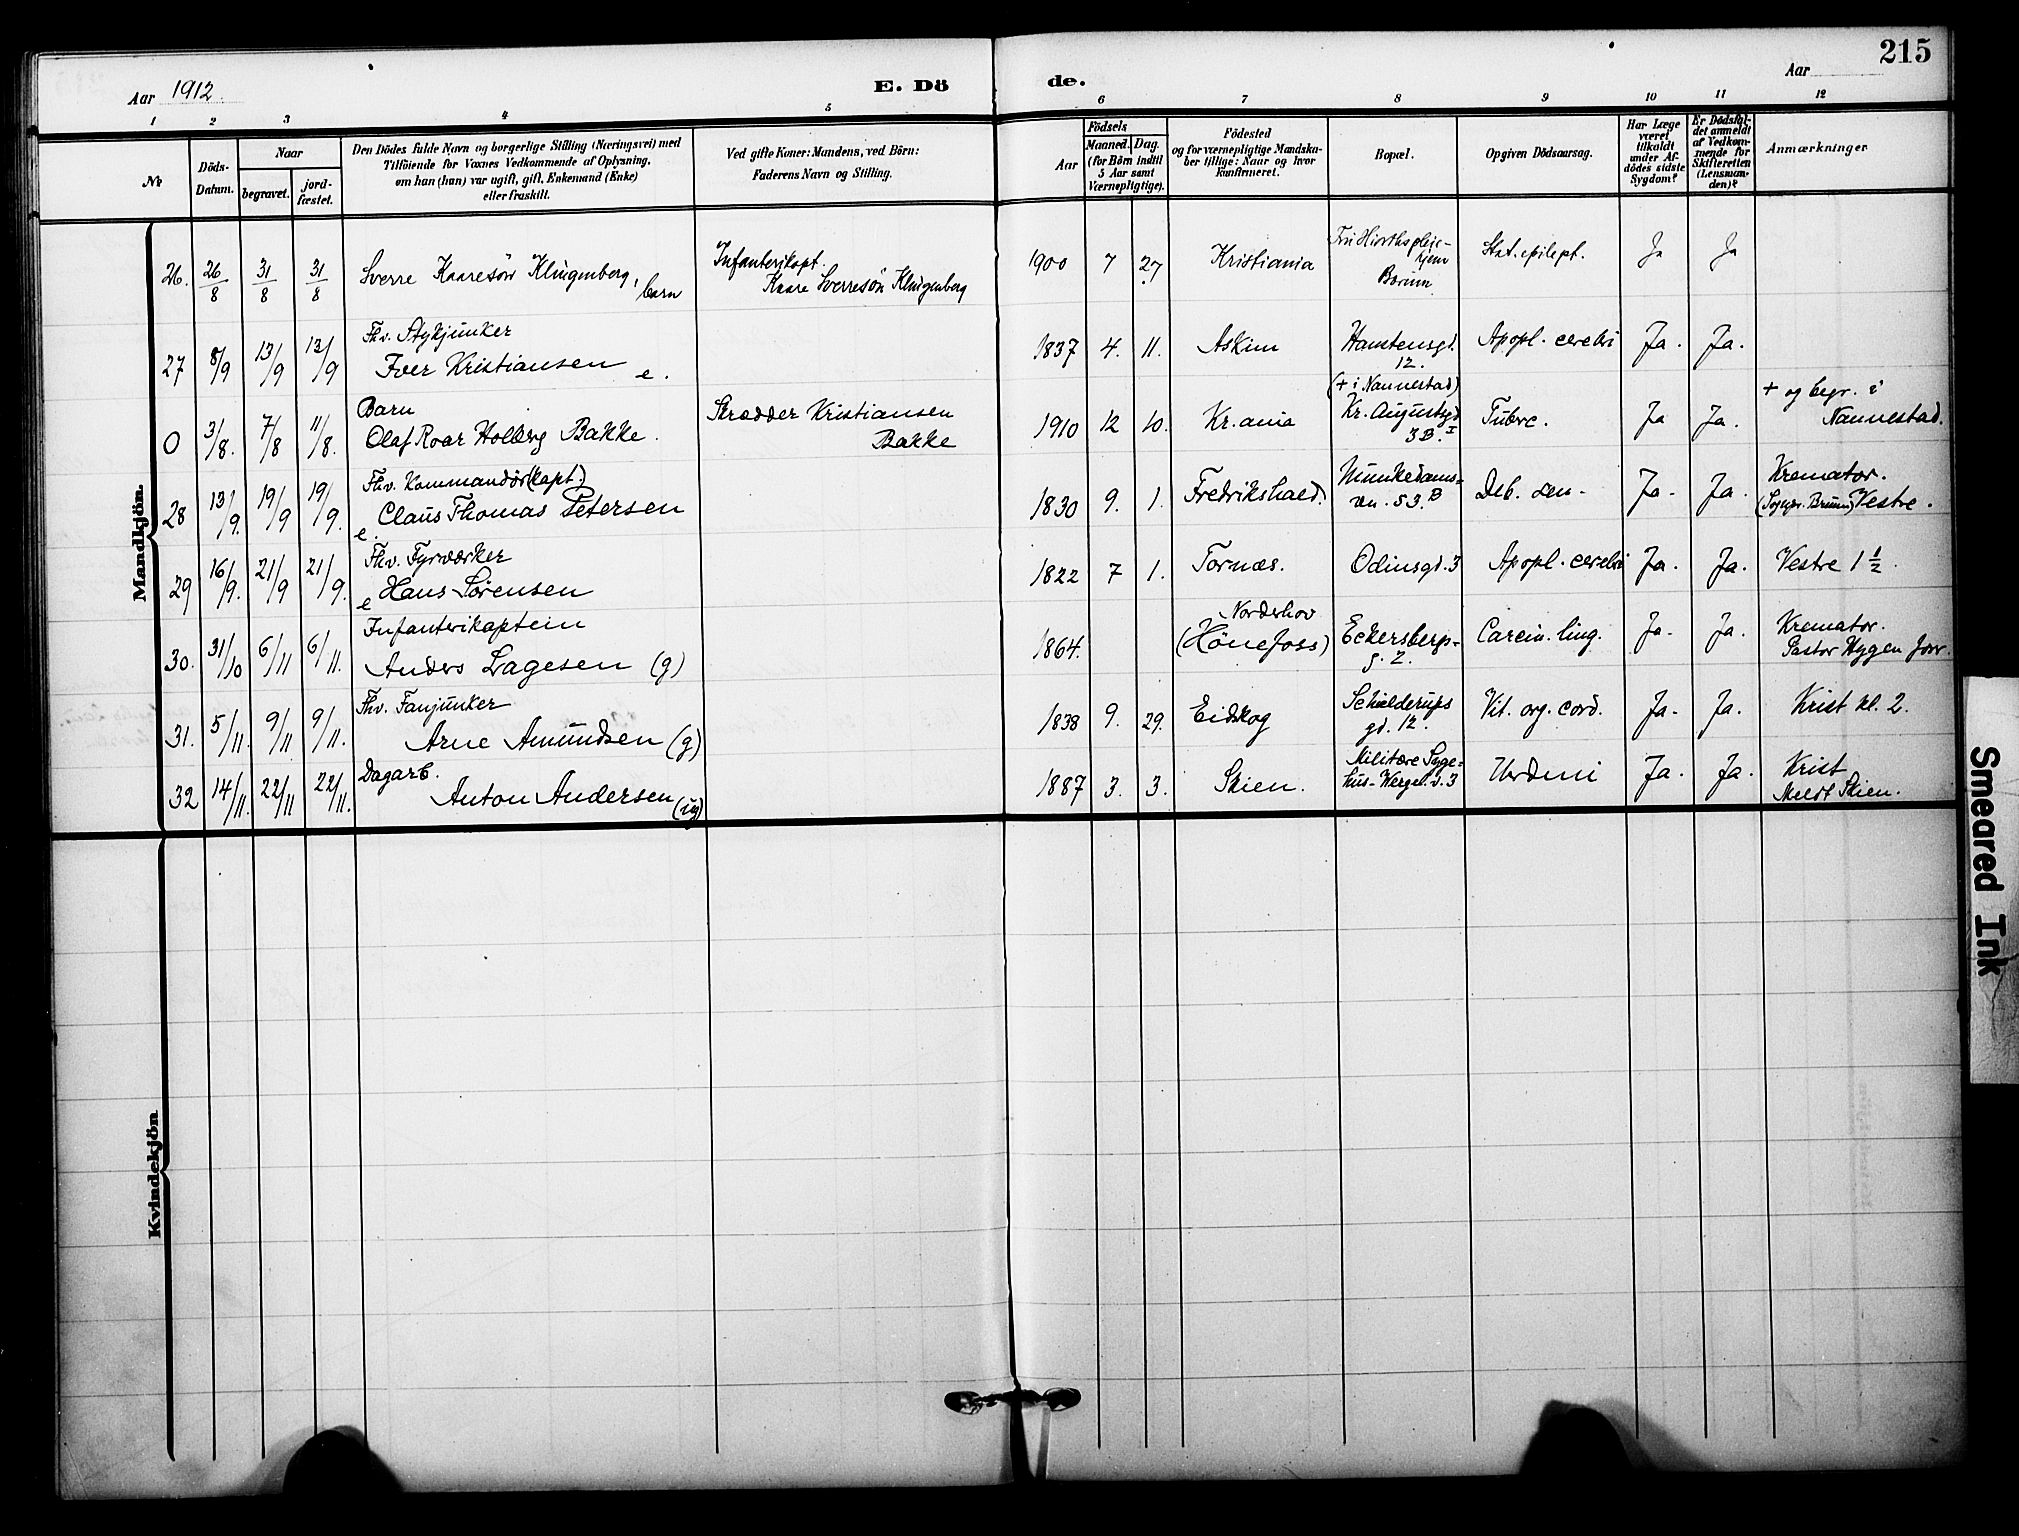 215
Aar 1912.
E. Dö de.
Aar
1 2 3 4 5 6 7 8 9 10 11 12
№
Döds-
Datum.
Naar
begravet.
jord-
fæstet.
Den Dödes fulde Navn og borgerlige Stilling (Næringsvei) med
Tilföiende for Voxnes Vedkommende af Oplysning,
om han (hun) var ugift, gift, Enkemand (Enke)
eller fraskilt.
Ved gifte Koner: Mandens, ved Börn:
Faderens Navn og Stilling.
Aar
Födsels
Maaned. Dag.
(for Börn indtil
5 Aar samt
Værnepligtige).
Födested
og for værnepligtige Mandska-
ber tillige: Naar og hvor
konfirmeret.
Bopæl.
Opgiven Dödsaarsag.
Har Læge
været
tilkaldt
under Af-
dödes sidste
Sygdom?
Er Dödsfal-
det anmeldt
af Vedkom-
mende for
Skifteretten
(Lensman-
den)?
Anmærkninger
Mandkjön.
26. 26/8 31/8 31/8 Sverre Kaaresøn Klingenberg, barn
Infanterikapt.
Kaare Sverresøn Klingenberg
1900 7 27. Kristiania
Bærum
Stat. epilept. Ja Ja
27 8/9 13/9 13/9 Fhv. Stykjunker
Iver Kristiansen e.
1837 4. 11. Askim
12.
Apopl. cerebri Ja. Ja.
0 31/8. 7/8 11/8. Barn
Olaf Roar Holberg Bakke.
Skrædder Kristiansen
Bakke
1910 12 10. Kr.ania
(+ i Nannestad)
Kr. Augustsgd.
3B. I
Tuberc. Ja Ja.
+ og begr. i
Nannestad.
28 13/9. 19/9 19/9. Fhv. Kommandør(kapt.)
e. Claus Thomas Petersen
1830 9. 1. Fredrikshald.
Munkedams-
vn. 53.B
Deb. sen. Ja. Ja.
Kremator.
(Sognpr. Bruun) Vestre.
29 16/9. 21/9 21/9. Fhv. Fyrværker
e Hans Sørensen
1822 7 1. Tornæs. Odinsgd. 3 Apopl. cerebri Ja. Ja. Vestre 1 1/2.
30. 31/10 6/11 6/11. Infanterikaptein
Anders Lagesen (g)
1864.
Norderhov
(Hönefoss)
Eckersbergs-
g. 2.
Carcin. ling. Ja. Ja.
Kremator.
Pastor Hygen forr.
31. 5/11. 9/11 9/11. Fhv. Fanjunker
Arne Amundsen (g)
1838 9. 29. Eidskog
Schulderups
gd. 12.
Vit. org. cord. Ja. Ja. Krist kl. 2.
32 14/11. 22/11 22/11. Dagarb.
Anton Andersen (ug)
1887 3. 3. Skien.
Militære Syge-
hus. Wergel. v. 3
Ja. Ja.
Krist
Meldt Skien.
Kvindekjön
Smeared Ink